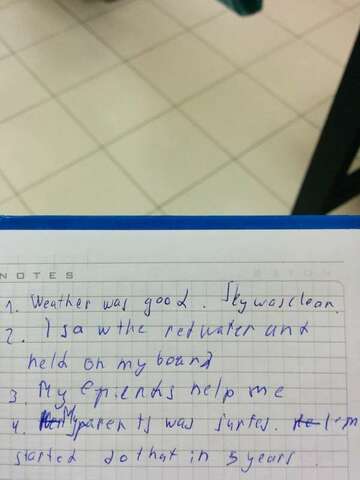 NOTES
1. Weather was good. Sky was clean.
2. I saw the red water and
held on my board
3. My friends help me
4. My parents was surfes. I'm
started do that in 5 years.